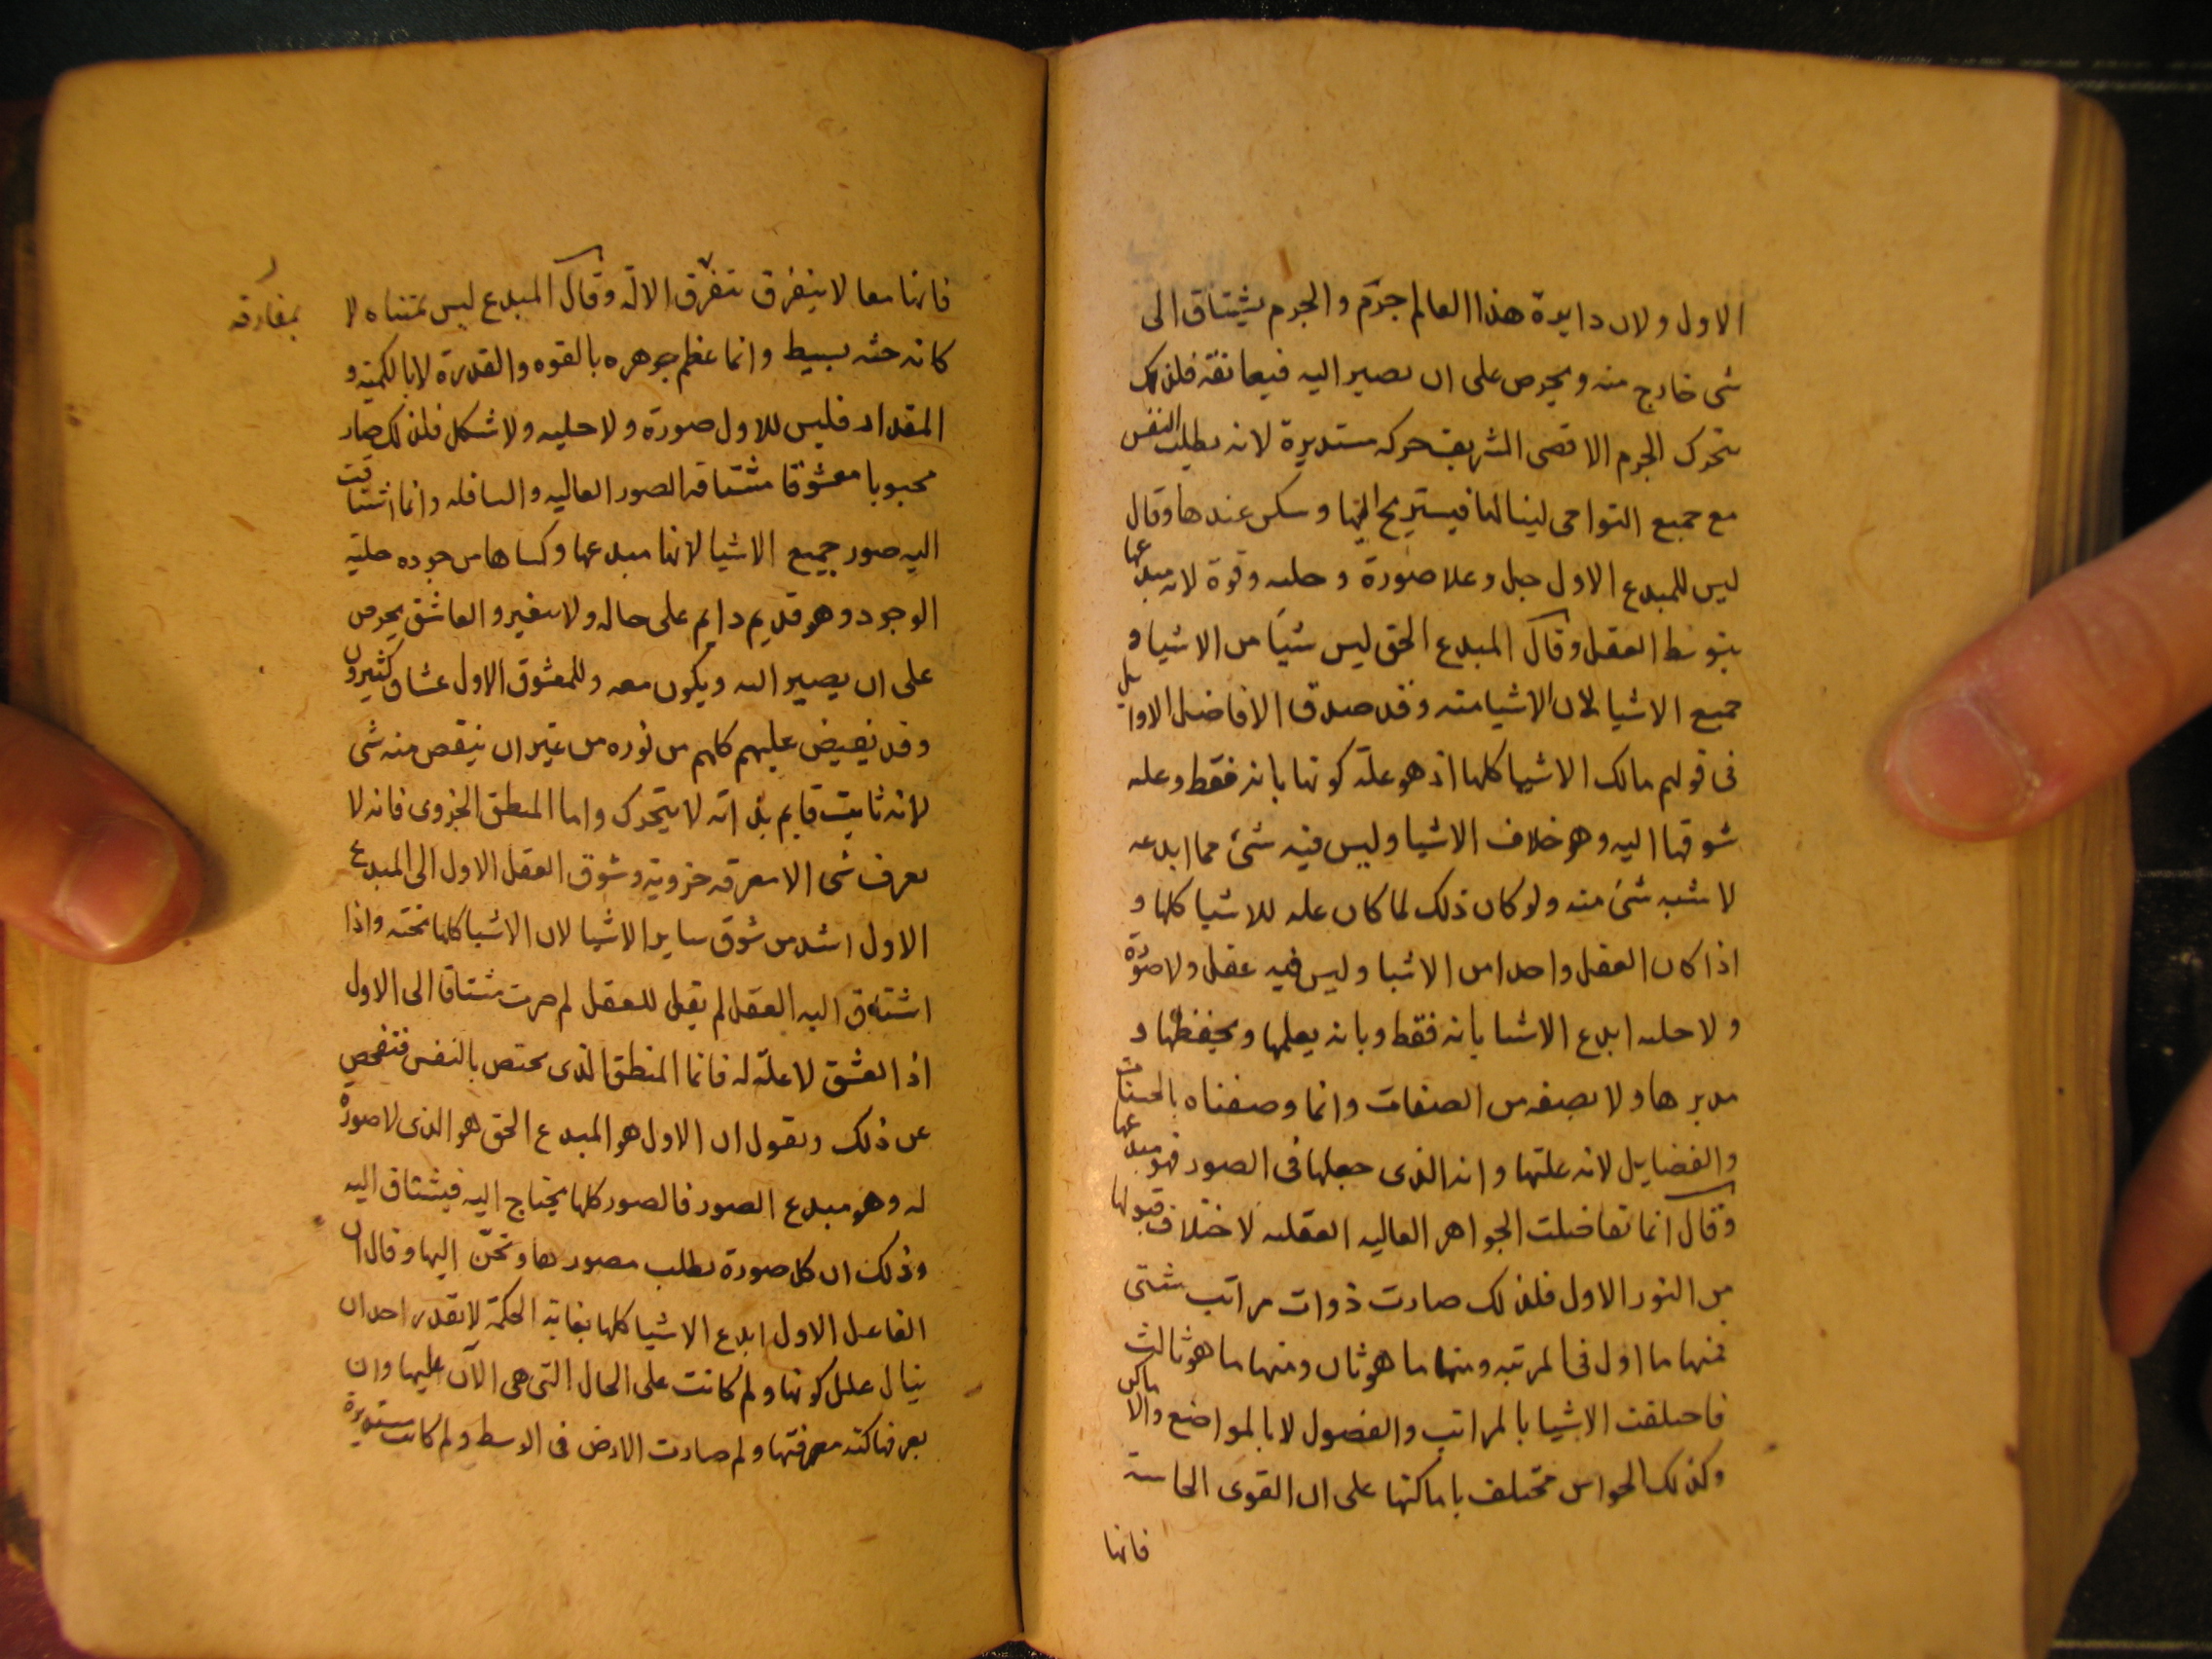 الاول ولان دايرة هذا العالم جرم والجرم يشتاق الى
شى خارج منه ويحرص على ان يصير اليه فيعانقه فلذلك
يتحرك الجرم الاقصى الشريف حركه مستديرة لانه يطلب النفس
مع جميع النواحى لينالها فيستريح اليها وسكن عندها وقال
ليس للمبدع الاول جل وعلا صورة وحليه وقوة لانه مبدعها
بتوسط العقل وقال المبدع الحق ليس شيا من الاشيا و
جميع الاشيا لان الاشيا منه وقد صدق الافاضل الاوايل
فى قولهم مالك الاشيا كلها اذ هو علة كونها بانه فقط وعله
شوقها اليه وهو خلاف الاشيا وليس فيه شئ مما ابدعه
لا شبه شئ منه ولو كان ذلك لما كان عله للاشيا كلها و
اذا كان العقل واحدا من الاشيا وليس فيه عقل ولا صورة
ولا حليه ابدع الاشيا بانه فقط وبانه يعلمها ويحفظها و
مدبرها ولا بصفه من الصفات وانما وصفناه بالحسنات
والفضايل لانه علتها وانه الذى جعلها فى الصور فهو مبدعها
وقال انما تفاضلت الجواهر العاليه العقليه لاختلاف قبولها
من النور الاول فلذلك صارت ذوات مراتب شتى
فمنها ما اول فى المرتبه ومنها ما هو ثان ومنها ما هو ثالث
فاختلفت الاشيا بالمراتب والفصول لا بالمواضع والاماكن
وكذلك الحواس تختلف باماكنها على ان القوى الحاسة
فانها
فانها معا لا يتفرق بتفرق الالة وقال المبدع ليس بمتناه لا
بمفارقه
كانه جثه بسيط وانما عظم جوهره بالقوه والقدرة لا بالكميه و
المقدار فليس للاول صورة ولا حليه ولا شكل فلذلك صار
محبوبا معشوقا مشتاقه الصور العاليه والسافله وانما اشتاقت
اليه صور جميع الاشيا لانها مبدعها وكساها من جوده حلية
الوجود وهو قديم دايم على حاله ولا يتغير والعاشق يحرص
على ان يصير اليه ويكون معه وللمعشوق الاول عشاق كثيرون
وقد يفيض عليهم كلهم من نوره من غير ان ينقص منه شى
لانه ثابت قايم بذاته لا يتحرك واما المنطق الجزوى فانه لا
يعرف شى الا معرفه جزوية وشوق العقل الاول الى المبدع
الاول اشد من شوق ساير الاشيا لان الاشيا كلها تحته واذا
اشتاق اليه العقل لم يقل للعقل لم صرت مشتاقا الى الاول
اذ العشق لا علة له فانما المنطق الذى يختص بالنفس فتفحص
عن ذلك ويقول ان الاول هو المبدع الحق هو الذى لا صورة
له وهو مبدع الصور فالصور كلها يحتاج اليه فيشتاق اليه
وذلك ان كل صورة يطلب مصورها وتحن اليها وقال ان
الفاعل الاول ابدع الاشيا كلها بغاية الحكمة لا يقدر احد ان
ينال علل كونها ولم كانت على الحال التى هى الآن عليها وان
يعرفها كنه معرفتها ولم صارت الارض فى الوسط ولم كانت مستديرة